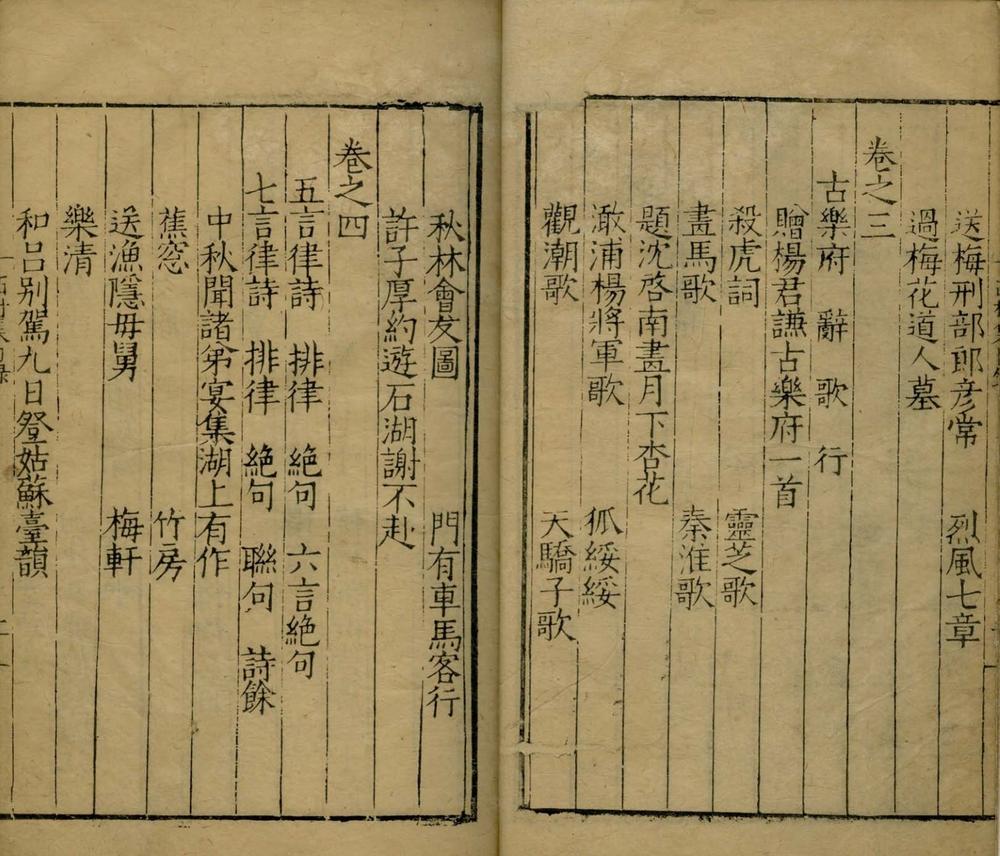 送梅刑部郎彦常 烈風七章
過梅花道人墓
卷之三
古樂府 辭 歌 行
贈楊君謙古樂府一首
殺虎詞 靈芝歌
畫馬歌 秦淮歌
題沈啓南畫月下杏花
澉浦楊將軍歌 狐綏綏
觀潮歌 天驕子歌
秋林會友圖 門有車馬客行
許子厚約遊石湖謝不赴
卷之四
五言律詩 排律 絕句 六言絕句
七言律詩 排律 絕句 聯句 詩餘
中秋聞諸弟宴集湖上有作
蕉窓 竹房
送漁隱毋舅 梅軒
樂清
和呂別駕九日登姑蘇臺韻